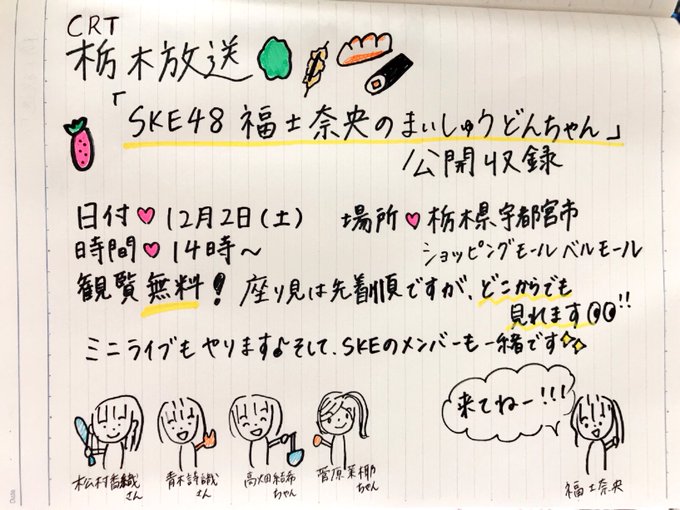 CRT
栃木放送
「SKE48 福士奈央のまいしゅうどんちゃん」
公開収録
日付♥12月2日(土)
時間♥14時〜
場所♥栃木県宇都宮市
ショッピングモール ベルモール
観覧無料! 座り見は先着順ですが、どこからでも
見れます!!
ミニライブもやります♪そして、SKEのメンバーも一緒です
松村香織
さん
青木詩織
さん
高畑結希
ちゃん
菅原茉椰
ちゃん
来てねー!!!
福士奈央
Date